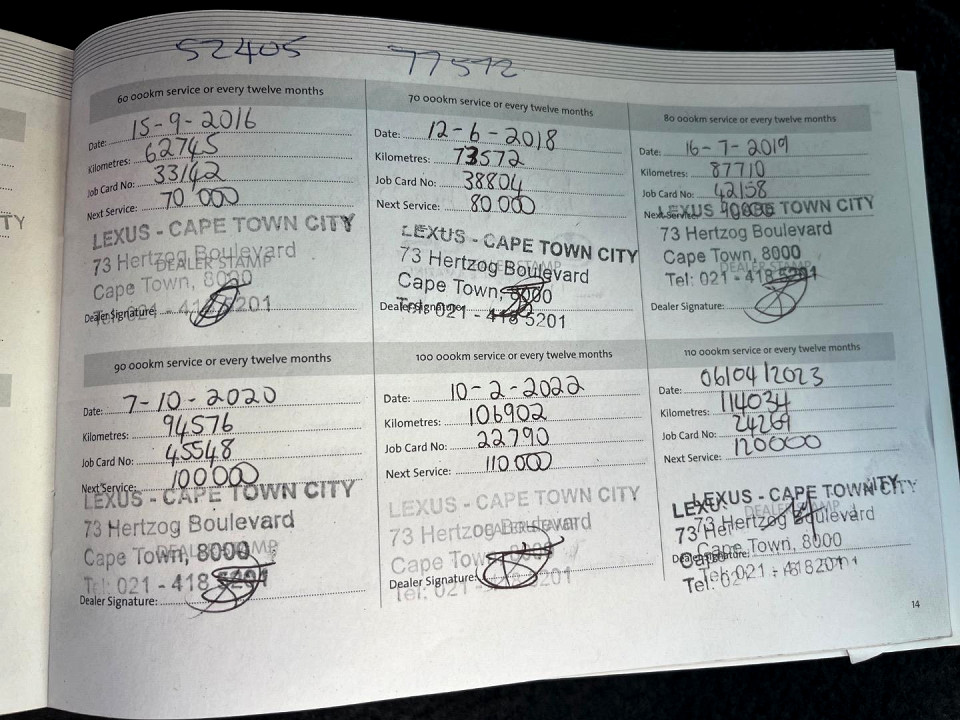 52405
77572
60 000km service or every twelve months
Date: 15-9-2016
Kilometres: 62745
Job Card No: 33142
Next Service: 70 000
LEXUS - CAPE TOWN CITY
73 Hertzog Boulevard
DEALER STAMP
Cape Town, 8000
Tel: 021 - 418 5201
Dealer Signature:
70 000km service or every twelve months
Date: 12-6-2018
Kilometres: 73572
Job Card No: 38804
Next Service: 80 000
LEXUS - CAPE TOWN CITY
73 Hertzog Boulevard
Cape Town, 8000
Tel: 021 - 418 5201
Dealer Signature:
80 000km service or every twelve months
Date: 16-7-2019
Kilometres: 87710
Job Card No: 42158
Next Service: 90000
LEXUS - CAPE TOWN CITY
73 Hertzog Boulevard
Cape Town, 8000
DEALER STAMP
Tel: 021 - 418 5201
Dealer Signature:
90 000km service or every twelve months
Date: 7-10-2020
Kilometres: 94576
Job Card No: 45548
Next Service: 100 000
LEXUS - CAPE TOWN CITY
73 Hertzog Boulevard
Cape Town, 8000
DEALER STAMP
Tel: 021 - 418 5201
Dealer Signature:
100 000km service or every twelve months
Date: 10-2-2022
Kilometres: 106902
Job Card No: 22790
Next Service: 110 000
LEXUS - CAPE TOWN CITY
73 Hertzog Boulevard
Cape Town, 8000
Dealer Signature:
Tel: 021 - 418 5201
110 000km service or every twelve months
Date: 06/04/2023
Kilometres: 114034
Job Card No: 24269
Next Service: 120000
LEXUS - CAPE TOWN CITY
DEALER STAMP
73 Hertzog Boulevard
Cape Town, 8000
Dealer Signature:
Tel: 021 - 418 5201
14